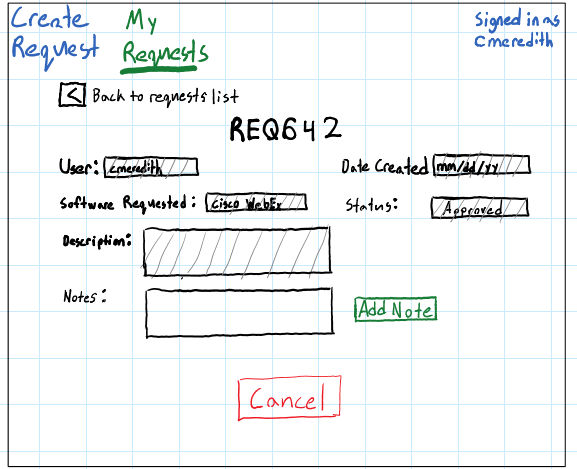 Create My Signed in as
Request Requests Cmeredith
< Back to requests list
REQ642
User: cmeredith Date Created mm/dd/yy
Software Requested: Cisco WebEx Status: Approved
Description:
Notes: Add Note
Cancel